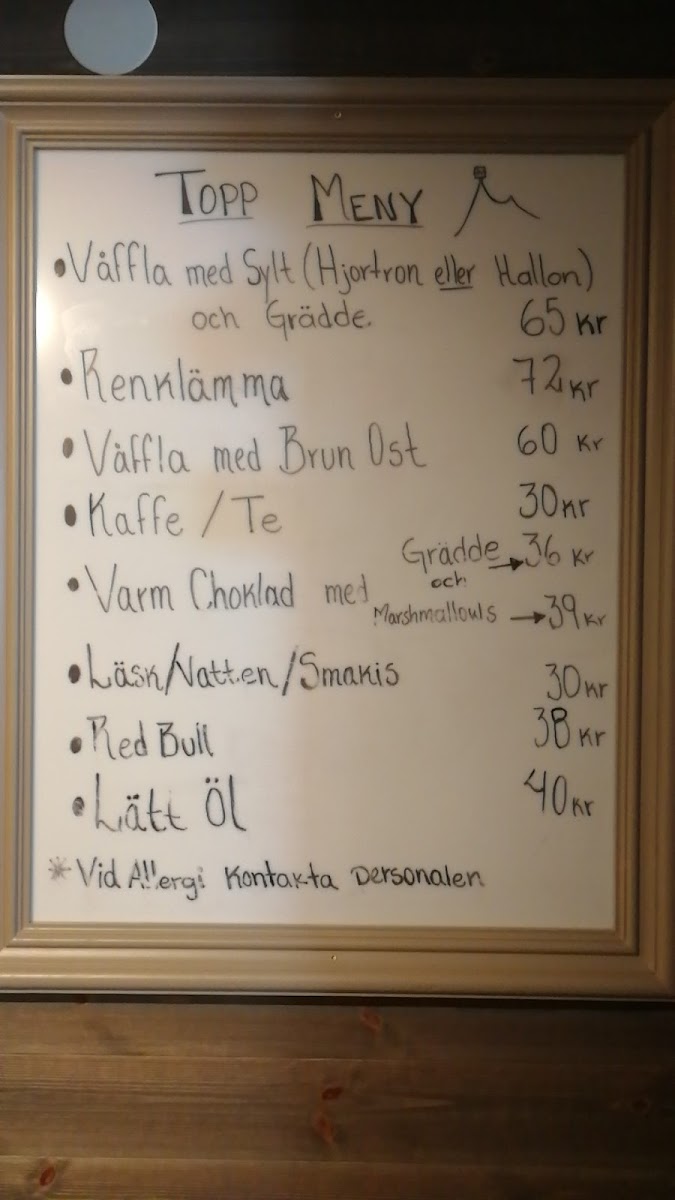 TOPP MENY
• Våffla med Sylt (Hjortron eller Hallon)
och Grädde. 65 Kr
• Renklämma 72 Kr
• Våffla med Brun Ost 60 Kr
• Kaffe / Te 30 Kr
Grädde → 36 Kr
• Varm Choklad med och
Marshmallows → 39 Kr
• Läsk/Vatten/Smakis 30 Kr
• Red Bull 38 Kr
• Lätt Öl 40 Kr
* Vid Allergi Kontakta Personalen